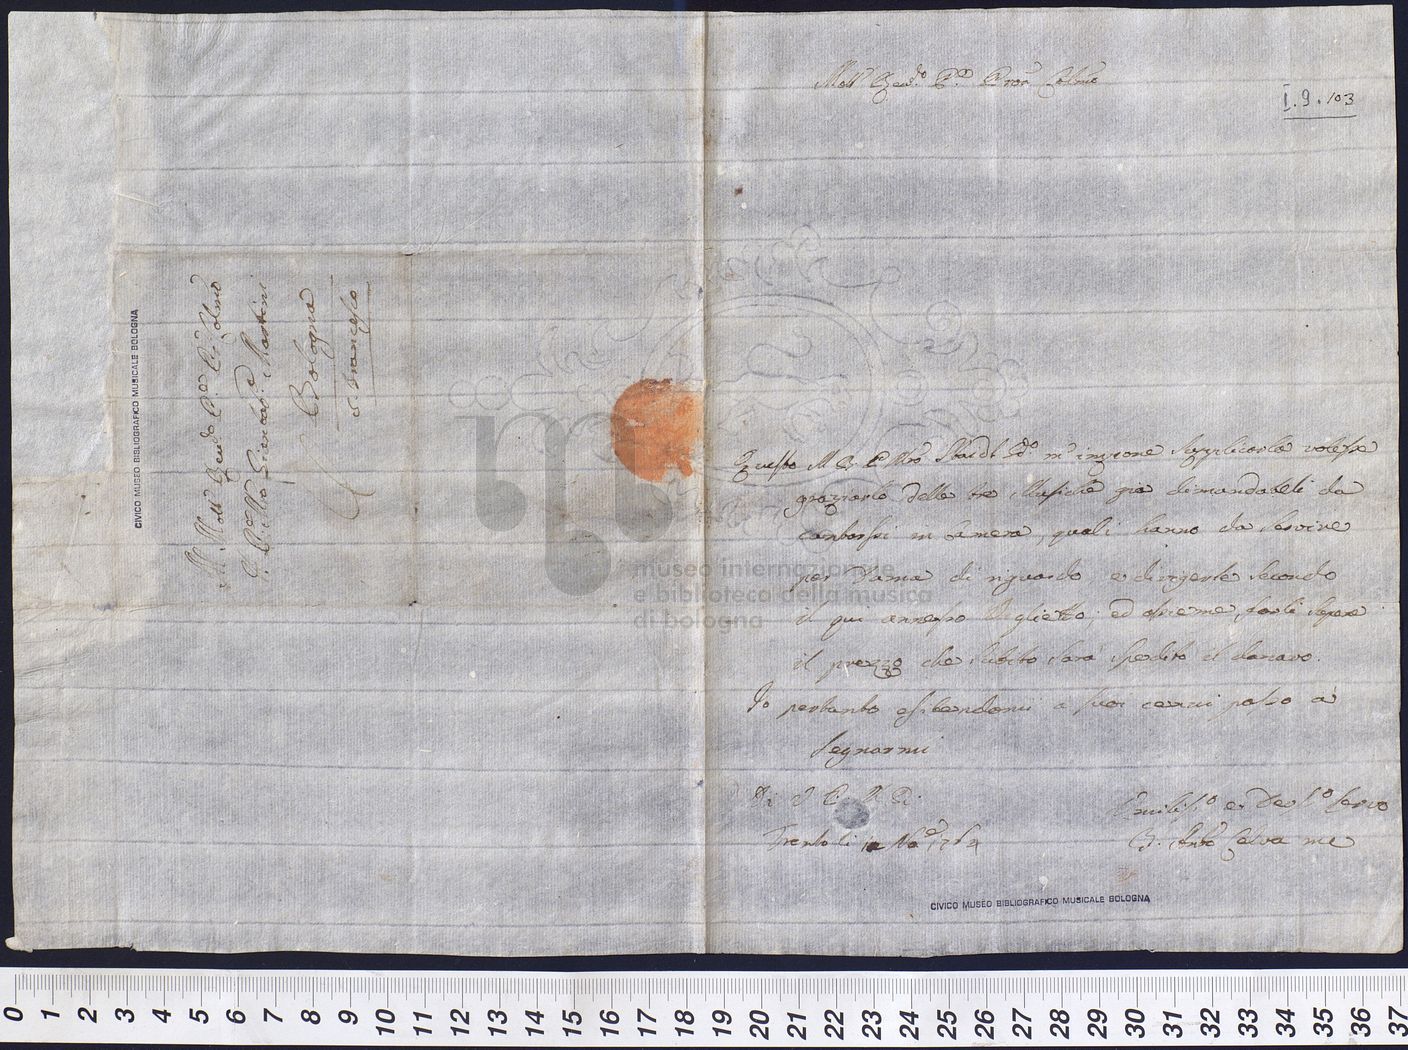 Al Molt Rev.do P.re P.ron Colmo
P. M.ro Giambat.a Martini
Bologna
S. Francesco
CIVICO MUSEO BIBLIOGRAFICO MUSICALE BOLOGNA
Molt Rev.do P.re P.ron Colmo
I.9.103
Questo M R P M.ro Sbardi m'impone supplicarla volesse
graziarlo delle tre Musiche già dimandateli da
cantarsi in Camera, quali hanno da servire
per Dama di riguardo, e dirigerle secondo
il qui annesso Viglietto, ed assieme farli sapere
il prezzo che subito sarà spedito il danaro.
Io pertanto esibendomi a suoi cenni passo à
segnarmi
Di V P M R
Trento li Nov.e 1764
Umiliss.o e Dev.o Servo
Ant.o Salva me
CIVICO MUSEO BIBLIOGRAFICO MUSICALE BOLOGNA
museo internazionale
e biblioteca della musica
di bologna
0 1 2 3 4 5 6 7 8 9 10 11 12 13 14 15 16 17 18 19 20 21 22 23 24 25 26 27 28 29 30 31 32 33 34 35 36 37